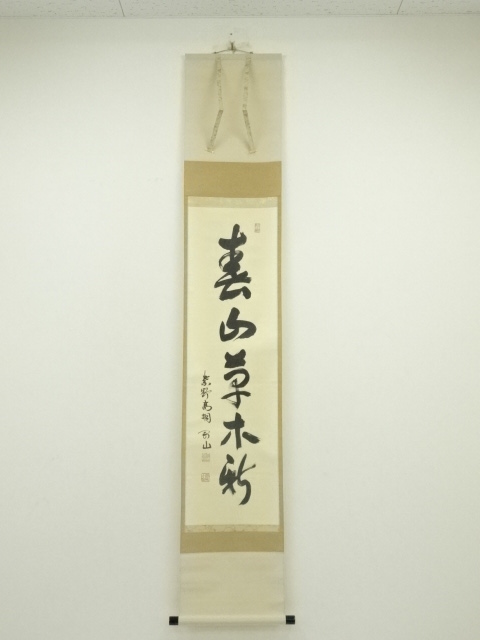 春山草木新
紫野高桐 剛山